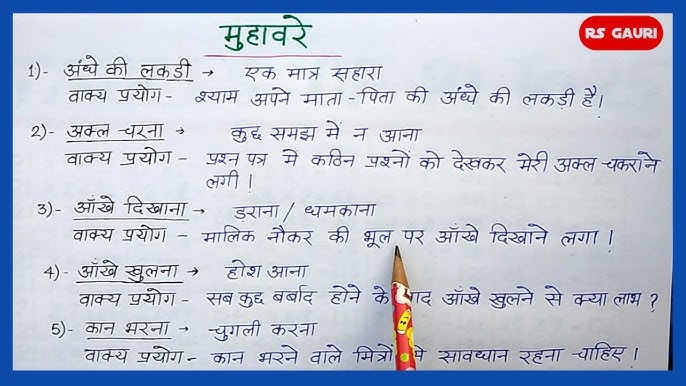 मुहावरे
RS GAURI
1)- अंधे की लकड़ी → एक मात्र सहारा
वाक्य प्रयोग - श्याम अपने माता-पिता की अंधे की लकड़ी है।
2)- अक्ल चरना → कुछ समझ में न आना
वाक्य प्रयोग - प्रश्न पत्र मे कठिन प्रश्नों को देखकर मेरी अक्ल चकराने
लगी!
3)- आँखे दिखाना → डराना / धमकाना
वाक्य प्रयोग - मालिक नौकर की भूल पर आँखे दिखाने लगा!
4)- आँखे खुलना → होश आना
वाक्य प्रयोग - सब कुछ बर्बाद होने के आँखे खुलने से क्या लाभ?
5)- कान भरना → चुगली करना
वाक्य प्रयोग - कान भरने वाले मित्रों सावधान रहना चाहिए!